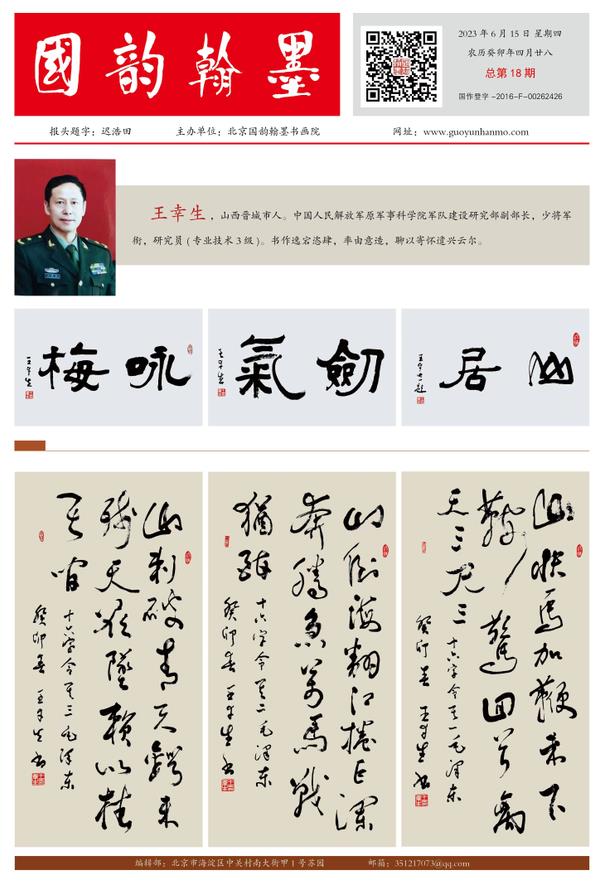 國韵翰墨
2023 年 6 月 15 日 星期四
农历癸卯年四月廿八
总第 18 期
国作登字 -2016-F-00262426
报头题字：迟浩田
主办单位：北京国韵翰墨书画院
网址：www.guoyunhanmo.com
王幸生，山西晋城市人。中国人民解放军原军事科学院军队建设研究部副部长，少将军
衔，研究员（专业技术 3 级）。书作逸宕恣肆，率由意造，聊以寄怀遣兴云尔。
咏梅
王幸生
劍氣
王幸生
山居
王幸生题
山快馬加鞭未下
鞍驚回首離
天三尺三
十六字令其一毛泽东
癸卯春王幸生书
山倒海翻江捲巨瀾
奔騰急萬馬戰
猶酣
十六字令其二毛泽东
癸卯春王幸生书
山刺破青天鍔未
殘天欲墜賴以拄
其间
十六字令其三毛泽东
癸卯春王幸生书
编辑部：北京市海淀区中关村南大街甲 1 号苏园
邮箱：351217073@qq.com